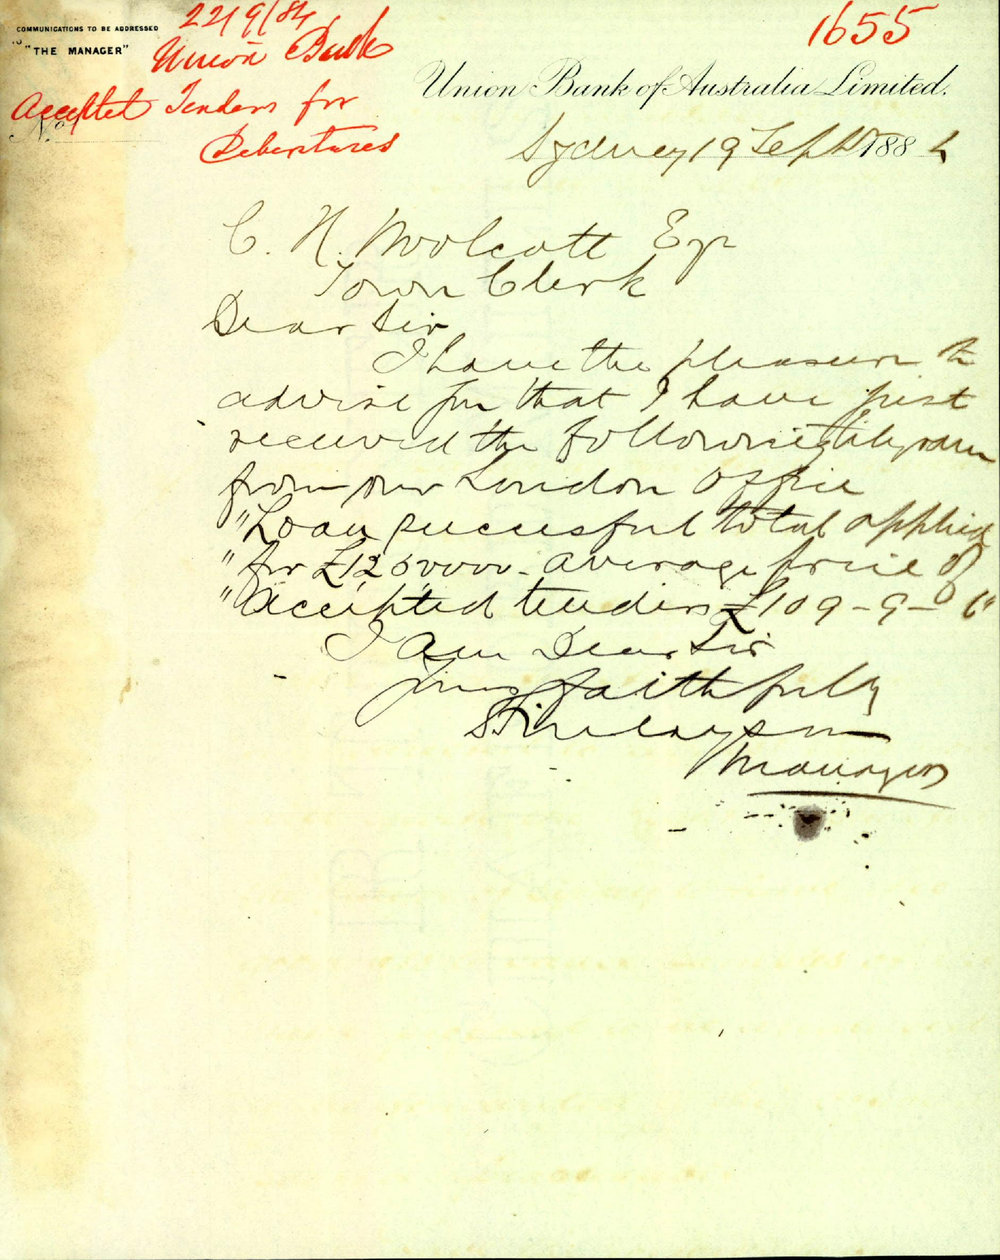 COMMUNICATIONS TO BE ADDRESSED
TO "THE MANAGER"
22/9/84
Union Bank
Accepted Tenders for
Debentures
No
1655
Union Bank of Australia Limited.
Sydney 19 Sept 1884
C. H. Woolcott Esqr
Town Clerk
Dear Sir
I have the pleasure to
advise you that I have just
received the following telegram
from our London Office
"Loan successful total applied
"for average price of
"accepted tenders £109-9-6"
I am Dear Sir
Yours faithfully
Finlayson
Manager